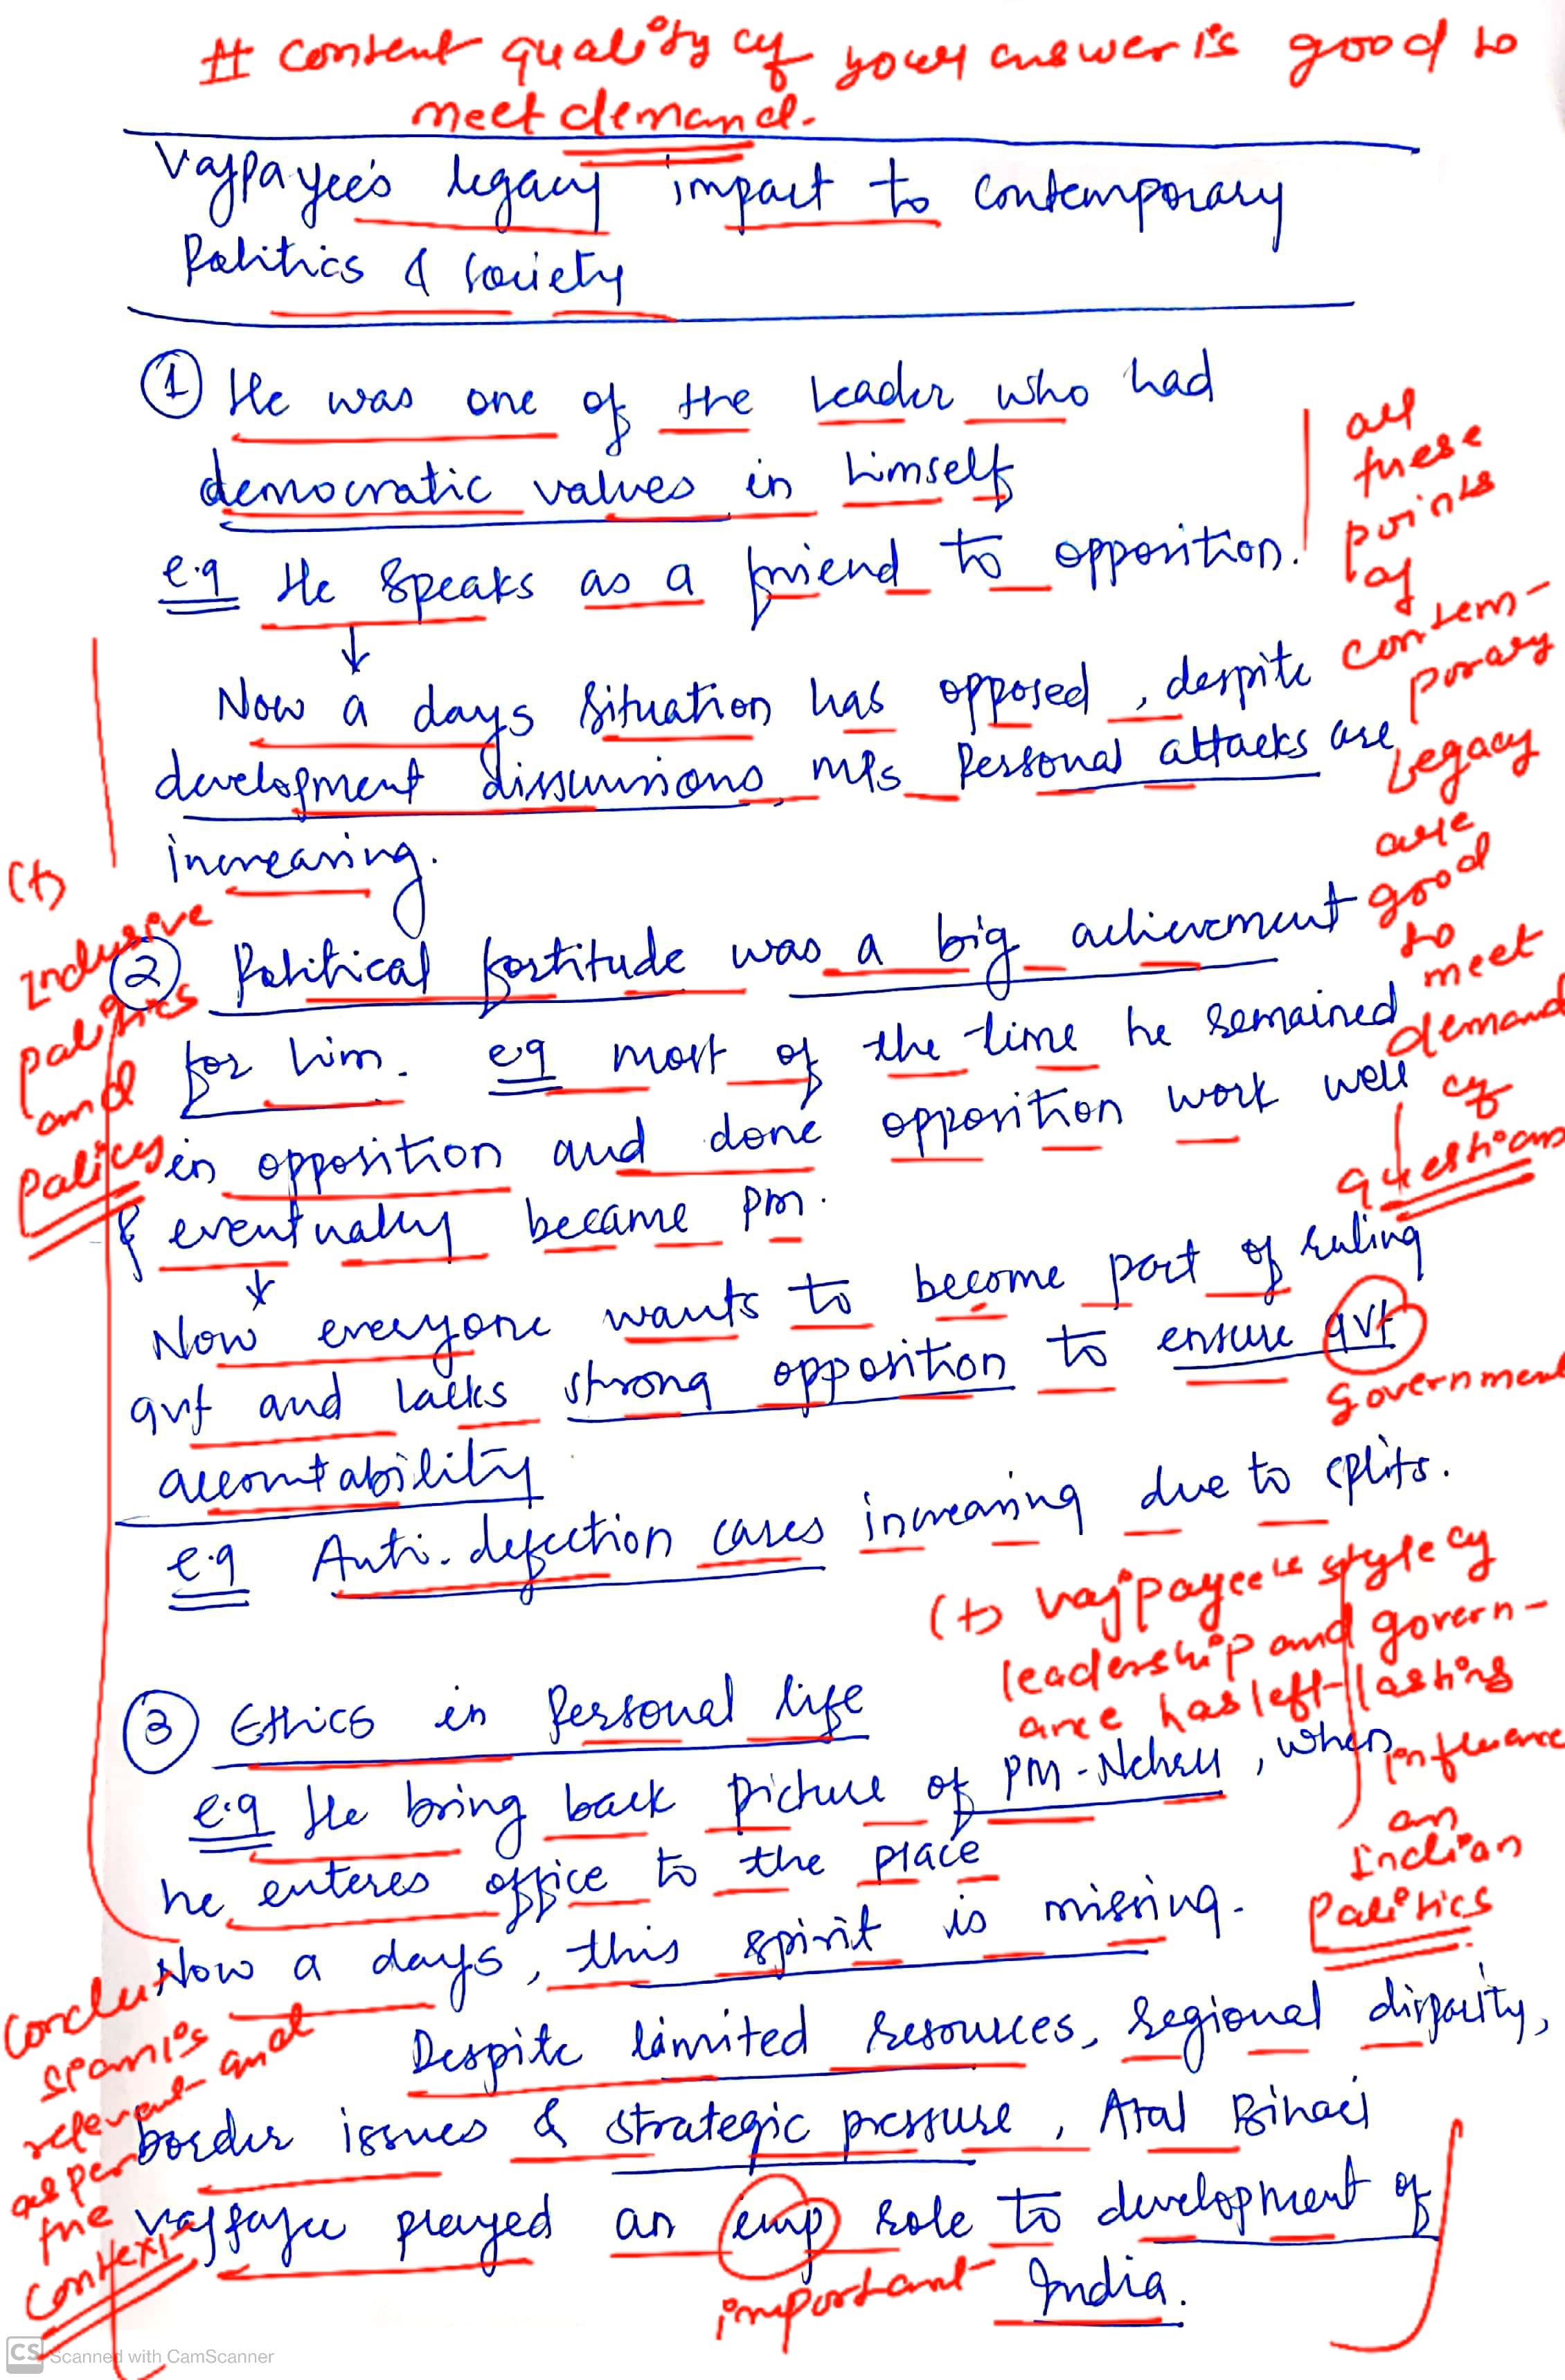 # Content quality of your answer is good to
meet demand.
Vajpayee's legacy impact to contemporary
Politics & Society
① He was one of the leader who had
democratic values in himself
e.g He speaks as a friend to opposition.
↓
Now a days situation has opposed, despite
development discussions, MPs Personal attacks are
increasing.
all
these
points
of
contem-
porary
Legacy
are
good
to
meet
demand
of
question
(+)
Inclusive
politics
and
policies
② Political fortitude was a big achievement
for him. e.g most of the time he remained
in opposition and done opposition work well
& eventually became PM.
↓
Now everyone wants to become part of ruling
gvt and lacks strong opposition to ensure gvt
government
accountability
e.g Anti-defection cases increasing due to splits.
(+) Vajpayee's style of
leadership and govern-
ance has left lasting
influence
on
Indian
Politics
③ Ethics in Personal life
e.g He bring back picture of PM-Nehru, when
he enteres office to the place
Now a days, this spirit is missing.
Despite limited resources, regional disparity,
border issues & strategic pressure, Atal Bihari
Vajpayee played an imp role to development of
important
India.
Conclu
sion is
relevant and
as per
the
context
CS Scanned with CamScanner